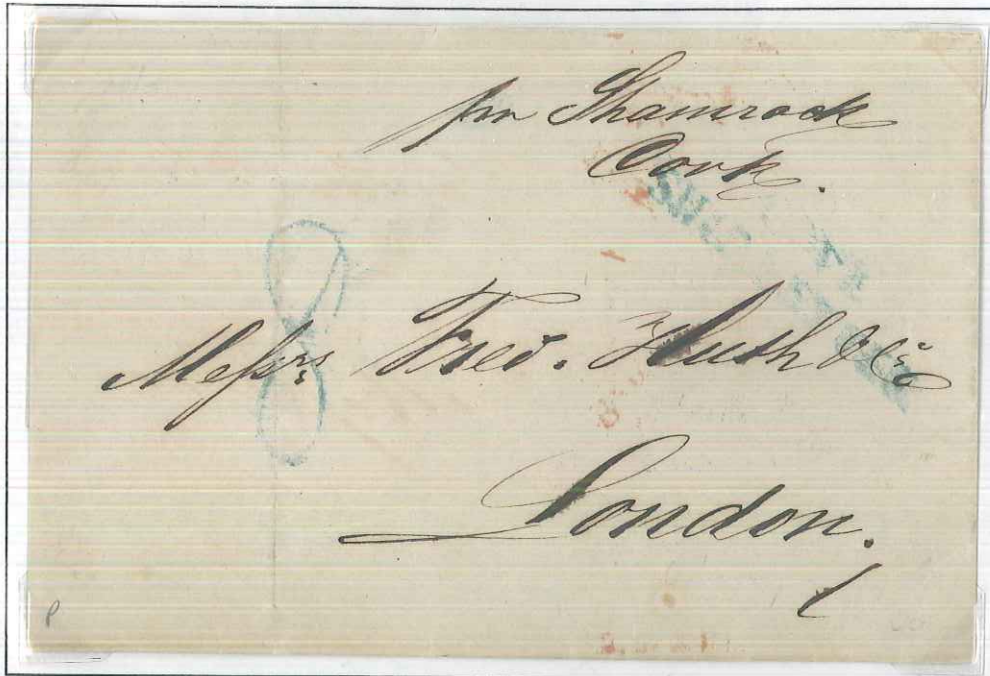 per Shamrock
Cork.
8
Messrs Fred. Huth & Co
London.
P